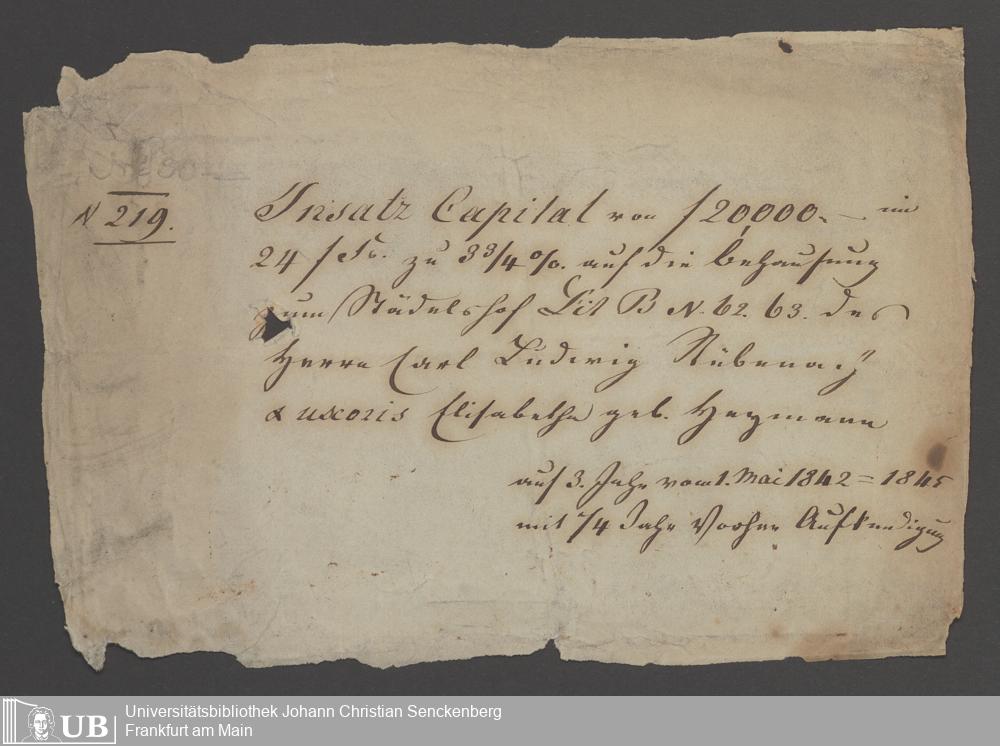 N 219.
Insatz Capital von f 20,000. – im
24 f Fs. zu 3 3/4 %. auf die Behausung
zum Städelshof Lit B N. 62. 63. des
Herrn Carl Ludwig
& uxoris Elisabetha geb. Heymann
auf 3. Jahr vom 1. Mai 1842 = 1845
mit 1/4 Jahr Vorher Aufkündigung
UB
Universitätsbibliothek Johann Christian Senckenberg
Frankfurt am Main